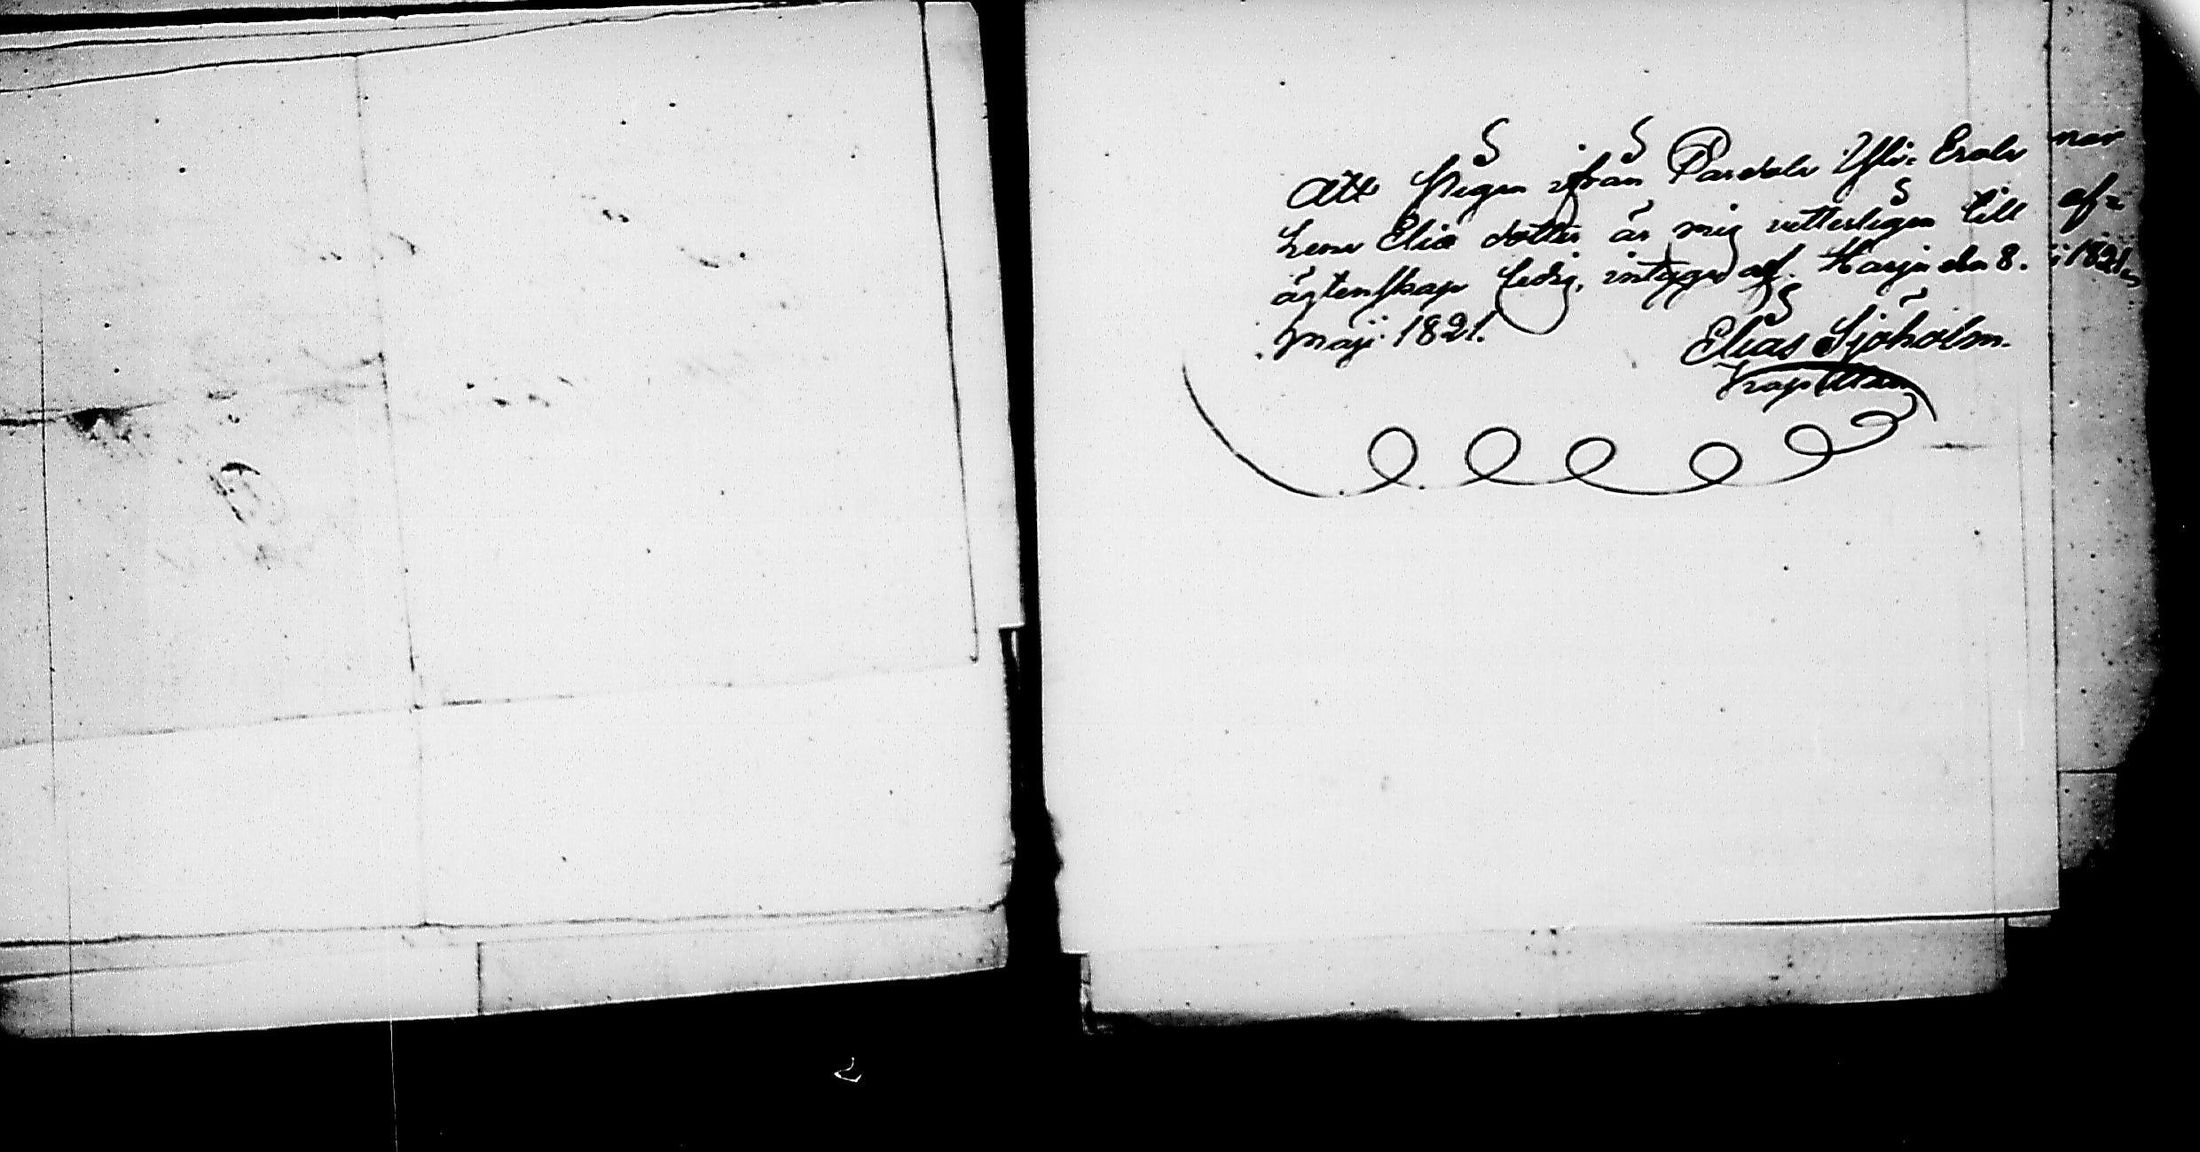 Att Pigan ifrån Pardala Yli-Erola
Lena Elia dotter är mig vetterligen till
ägtenskap ledig, intygar af. Harju den 8.
Maji 1821.
Elias Sjöholm.
nar
af=
i 1821